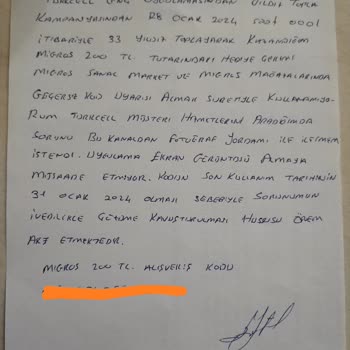 TURKCELL UYGULAMASINDAN YILDIZ TOPLA
KAMPANYASINDAN 28 OCAK 2024 SAAT 0001
İTİBARİYLE 33 YILDIZ TOPLAYARAK KAZANDIĞIM
MİGROS 200 TL. TUTARINDAKİ HEDİYE ÇEKİNİ
MİGROS SANAL MARKET VE MİGROS MAĞAZALARINDA
GEÇERSİZ KOD UYARISI ALMAK SURETİYLE KULLANAMIYO-
RUM TURKCELL MÜŞTERİ HİZMETLERİNİ ARADIĞIMDA
SORUNU BU KANALDAN FOTOĞRAF YARDIMI İLE İLETMEM
İSTENDİ. UYGULAMA EKRAN GÖRÜNTÜSÜ ALMAYA
MÜSAADE ETMİYOR. KODUN SON KULLANIM TARİHİNİN
31 OCAK 2024 OLMASI SEBEBİYLE SORUNUMUN
İVEDİLİKLE GÜNDEME KAVUŞTURULMASI HUSUSU ÖNEM
ARZ ETMEKTEDİR.
MİGROS 200 TL. ALIŞVERİŞ KODU